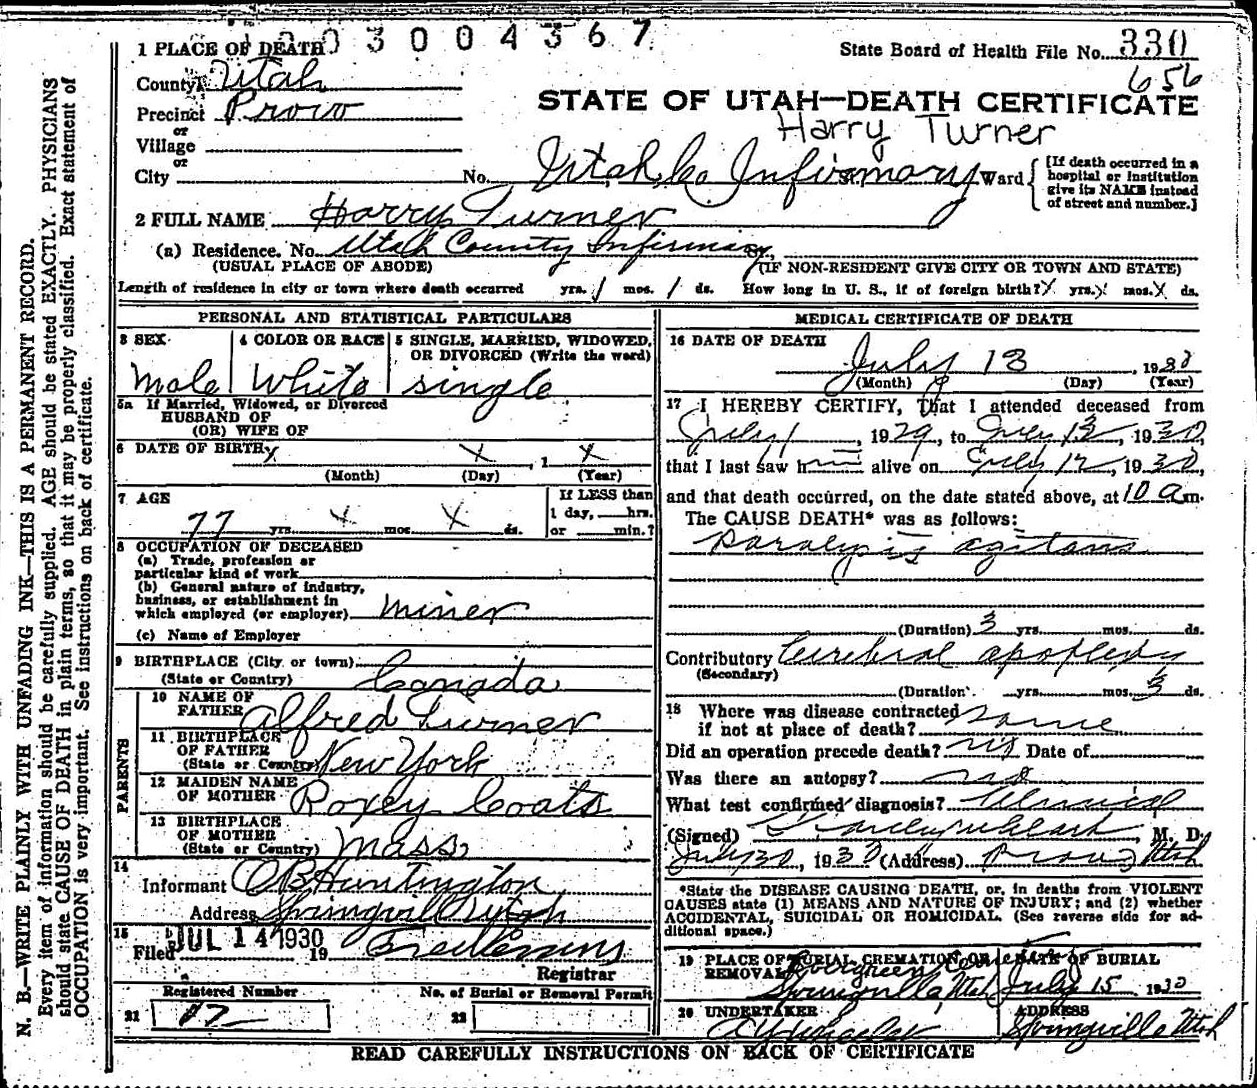 003004367
1 PLACE OF DEATH
State Board of Health File No. 330
County Utah
656
Precinct Provo
STATE OF UTAH—DEATH CERTIFICATE
or
Harry Turner
Village
or
City No. Utah Co Infirmary St. Ward
[If death occurred in a
hospital or institution
give its NAME instead
of street and number.]
2 FULL NAME Harry Turner
(a) Residence. No. Utah County Infirmary St.,
(USUAL PLACE OF ABODE) (IF NON-RESIDENT GIVE CITY OR TOWN AND STATE)
Length of residence in city or town where death occurred yrs. 1 mos. 1 ds. How long in U. S., if of foreign birth? X yrs. X mos. X ds.
PERSONAL AND STATISTICAL PARTICULARS
3 SEX 4 COLOR OR RACE 5 SINGLE, MARRIED, WIDOWED,
OR DIVORCED (Write the word)
Male White single
5a If Married, Widowed, or Divorced
HUSBAND OF
(OR) WIFE OF
6 DATE OF BIRTH X X , 1 X
(Month) (Day) (Year)
7 AGE If LESS than
77 yrs. X mos. X ds. 1 day, hrs.
or min.?
8 OCCUPATION OF DECEASED
(a) Trade, profession or
particular kind of work
(b) General nature of industry,
business, or establishment in
which employed (or employer) miner
(c) Name of Employer
9 BIRTHPLACE (City or town)
(State or Country) Canada
PARENTS
10 NAME OF
FATHER Alfred Turner
11 BIRTHPLACE
OF FATHER
(State or Country) New York
12 MAIDEN NAME
OF MOTHER Roxey Coats
13 BIRTHPLACE
OF MOTHER
(State or Country) Mass
14
Informant O B Huntington
Address Springville Utah
15
Filed JUL 14 1930 19
Registrar
Registered Number No. of Burial or Removal Permit
21 87 22
MEDICAL CERTIFICATE OF DEATH
16 DATE OF DEATH
July 13 , 1930
(Month) (Day) (Year)
17 I HEREBY CERTIFY, That I attended deceased from
July 1 , 1929, to July 13, 1930,
that I last saw him alive on July 12, 1930,
and that death occurred, on the date stated above, at 10 a m.
The CAUSE DEATH* was as follows:
Paralysis agitans
(Duration) 3 yrs. mos. ds.
Contributory Cerebral apoplexy
(Secondary)
(Duration) yrs. mos. 3 ds.
18 Where was disease contracted
if not at place of death?
Did an operation precede death? no Date of
Was there an autopsy? no
What test confirmed diagnosis? Clinical
(Signed) M. D.
July 30, 1930 (Address) Provo Utah
*State the DISEASE CAUSING DEATH, or, in deaths from VIOLENT
CAUSES state (1) MEANS AND NATURE OF INJURY; and (2) whether
ACCIDENTAL, SUICIDAL OR HOMICIDAL. (See reverse side for ad-
ditional space.)
19 PLACE OF BURIAL, CREMATION OR DATE OF BURIAL
REMOVAL Evergreen Cemetery
Springville, Utah July 15 1930
20 UNDERTAKER ADDRESS
A Y Wheeler Springville Utah
READ CAREFULLY INSTRUCTIONS ON BACK OF CERTIFICATE
N. B.—WRITE PLAINLY WITH UNFADING INK—THIS IS A PERMANENT RECORD.
Every item of information should be carefully supplied. AGE should be stated EXACTLY. PHYSICIANS
should state CAUSE OF DEATH in plain terms, so that it may be properly classified. Exact statement of
OCCUPATION is very important. See instructions on back of certificate.